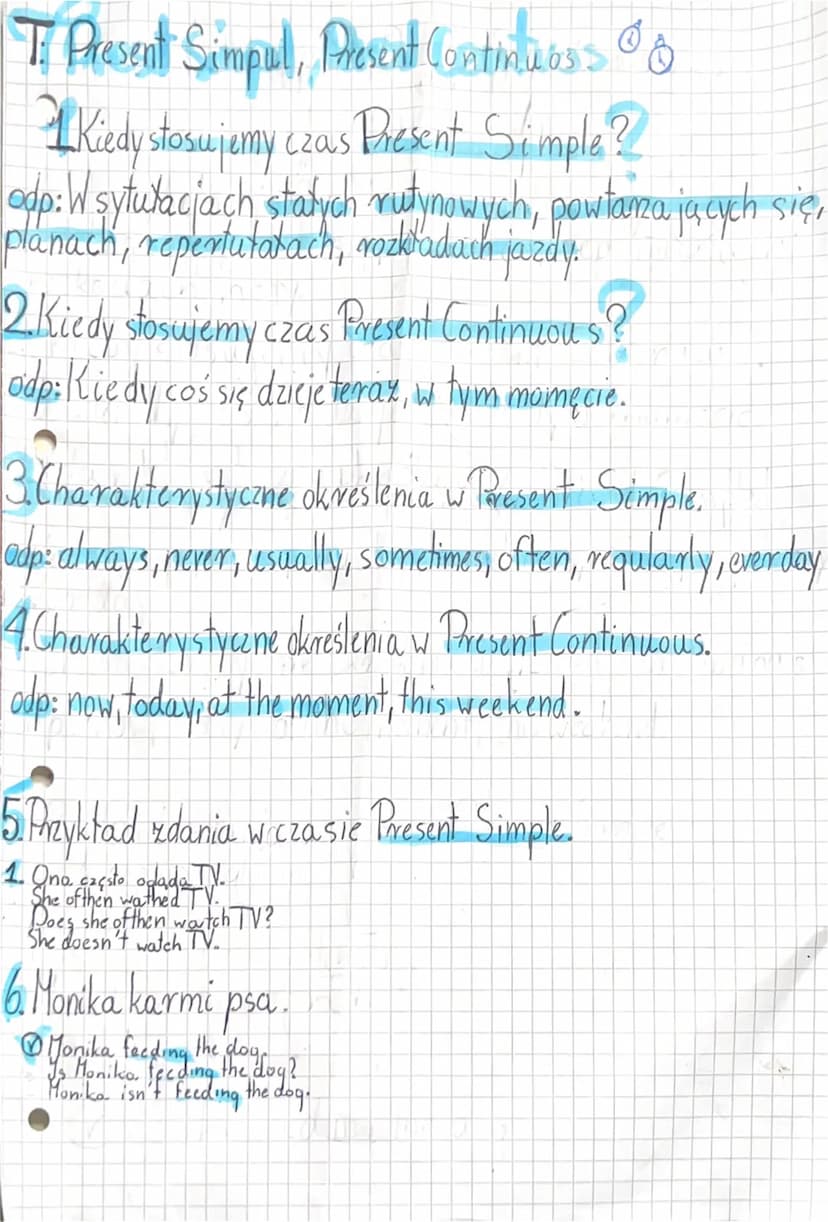 T: Present Simpul, Present Continuos
1. Kiedy stosujemy czas Present Simple?
odp: W sytutacjach stałych rutynowych, powtarzających się,
planach, repertutatach, rozkładach jazdy.
2. Kiedy stosujemy czas Present Continuous?
odp: Kiedy coś się dzieje teraz, w tym momęcie.
3. Charakterystyczne określenia w Present Simple.
odp: always, never, usually, sometimes, often, regularly, everday
4. Charakterystyczne określenia w Present Continuous.
odp: now, today, at the moment, this weekend.
5. Przykład zdania w czasie Present Simple.
1. Ona często ogląda TV.
She ofthen wathed TV.
Does she ofthen watch TV?
She doesn't watch TV.
6. Monika karmi psa.
Monika feeding the dog.
Is Monika feeding the dog?
Monika isn't feeding the dog.